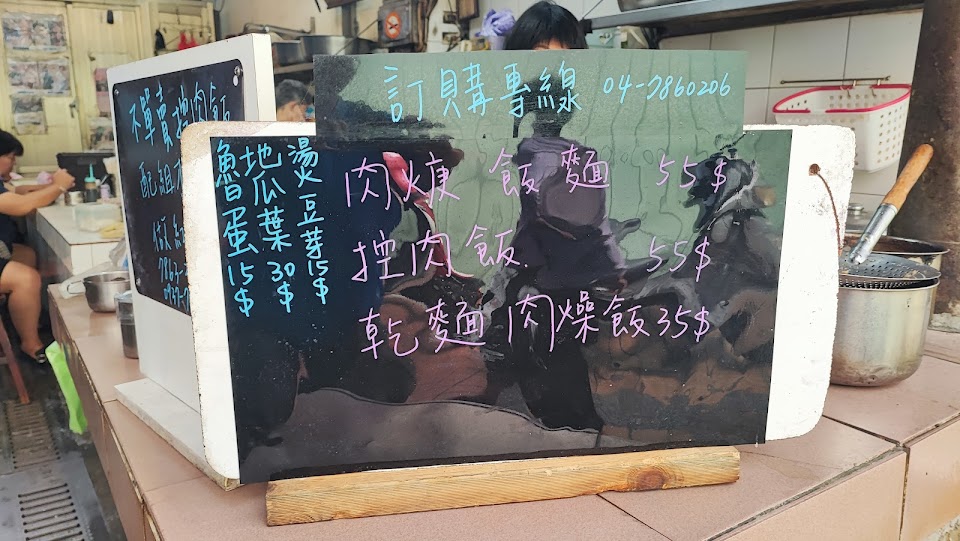 不單賣控肉飯
訂購專線 04-7860206
魯蛋 15$
地瓜葉 30$
湯豆芽 15$
肉焿 飯 麵 55$
控肉飯 55$
乾麵 肉燥飯 35$